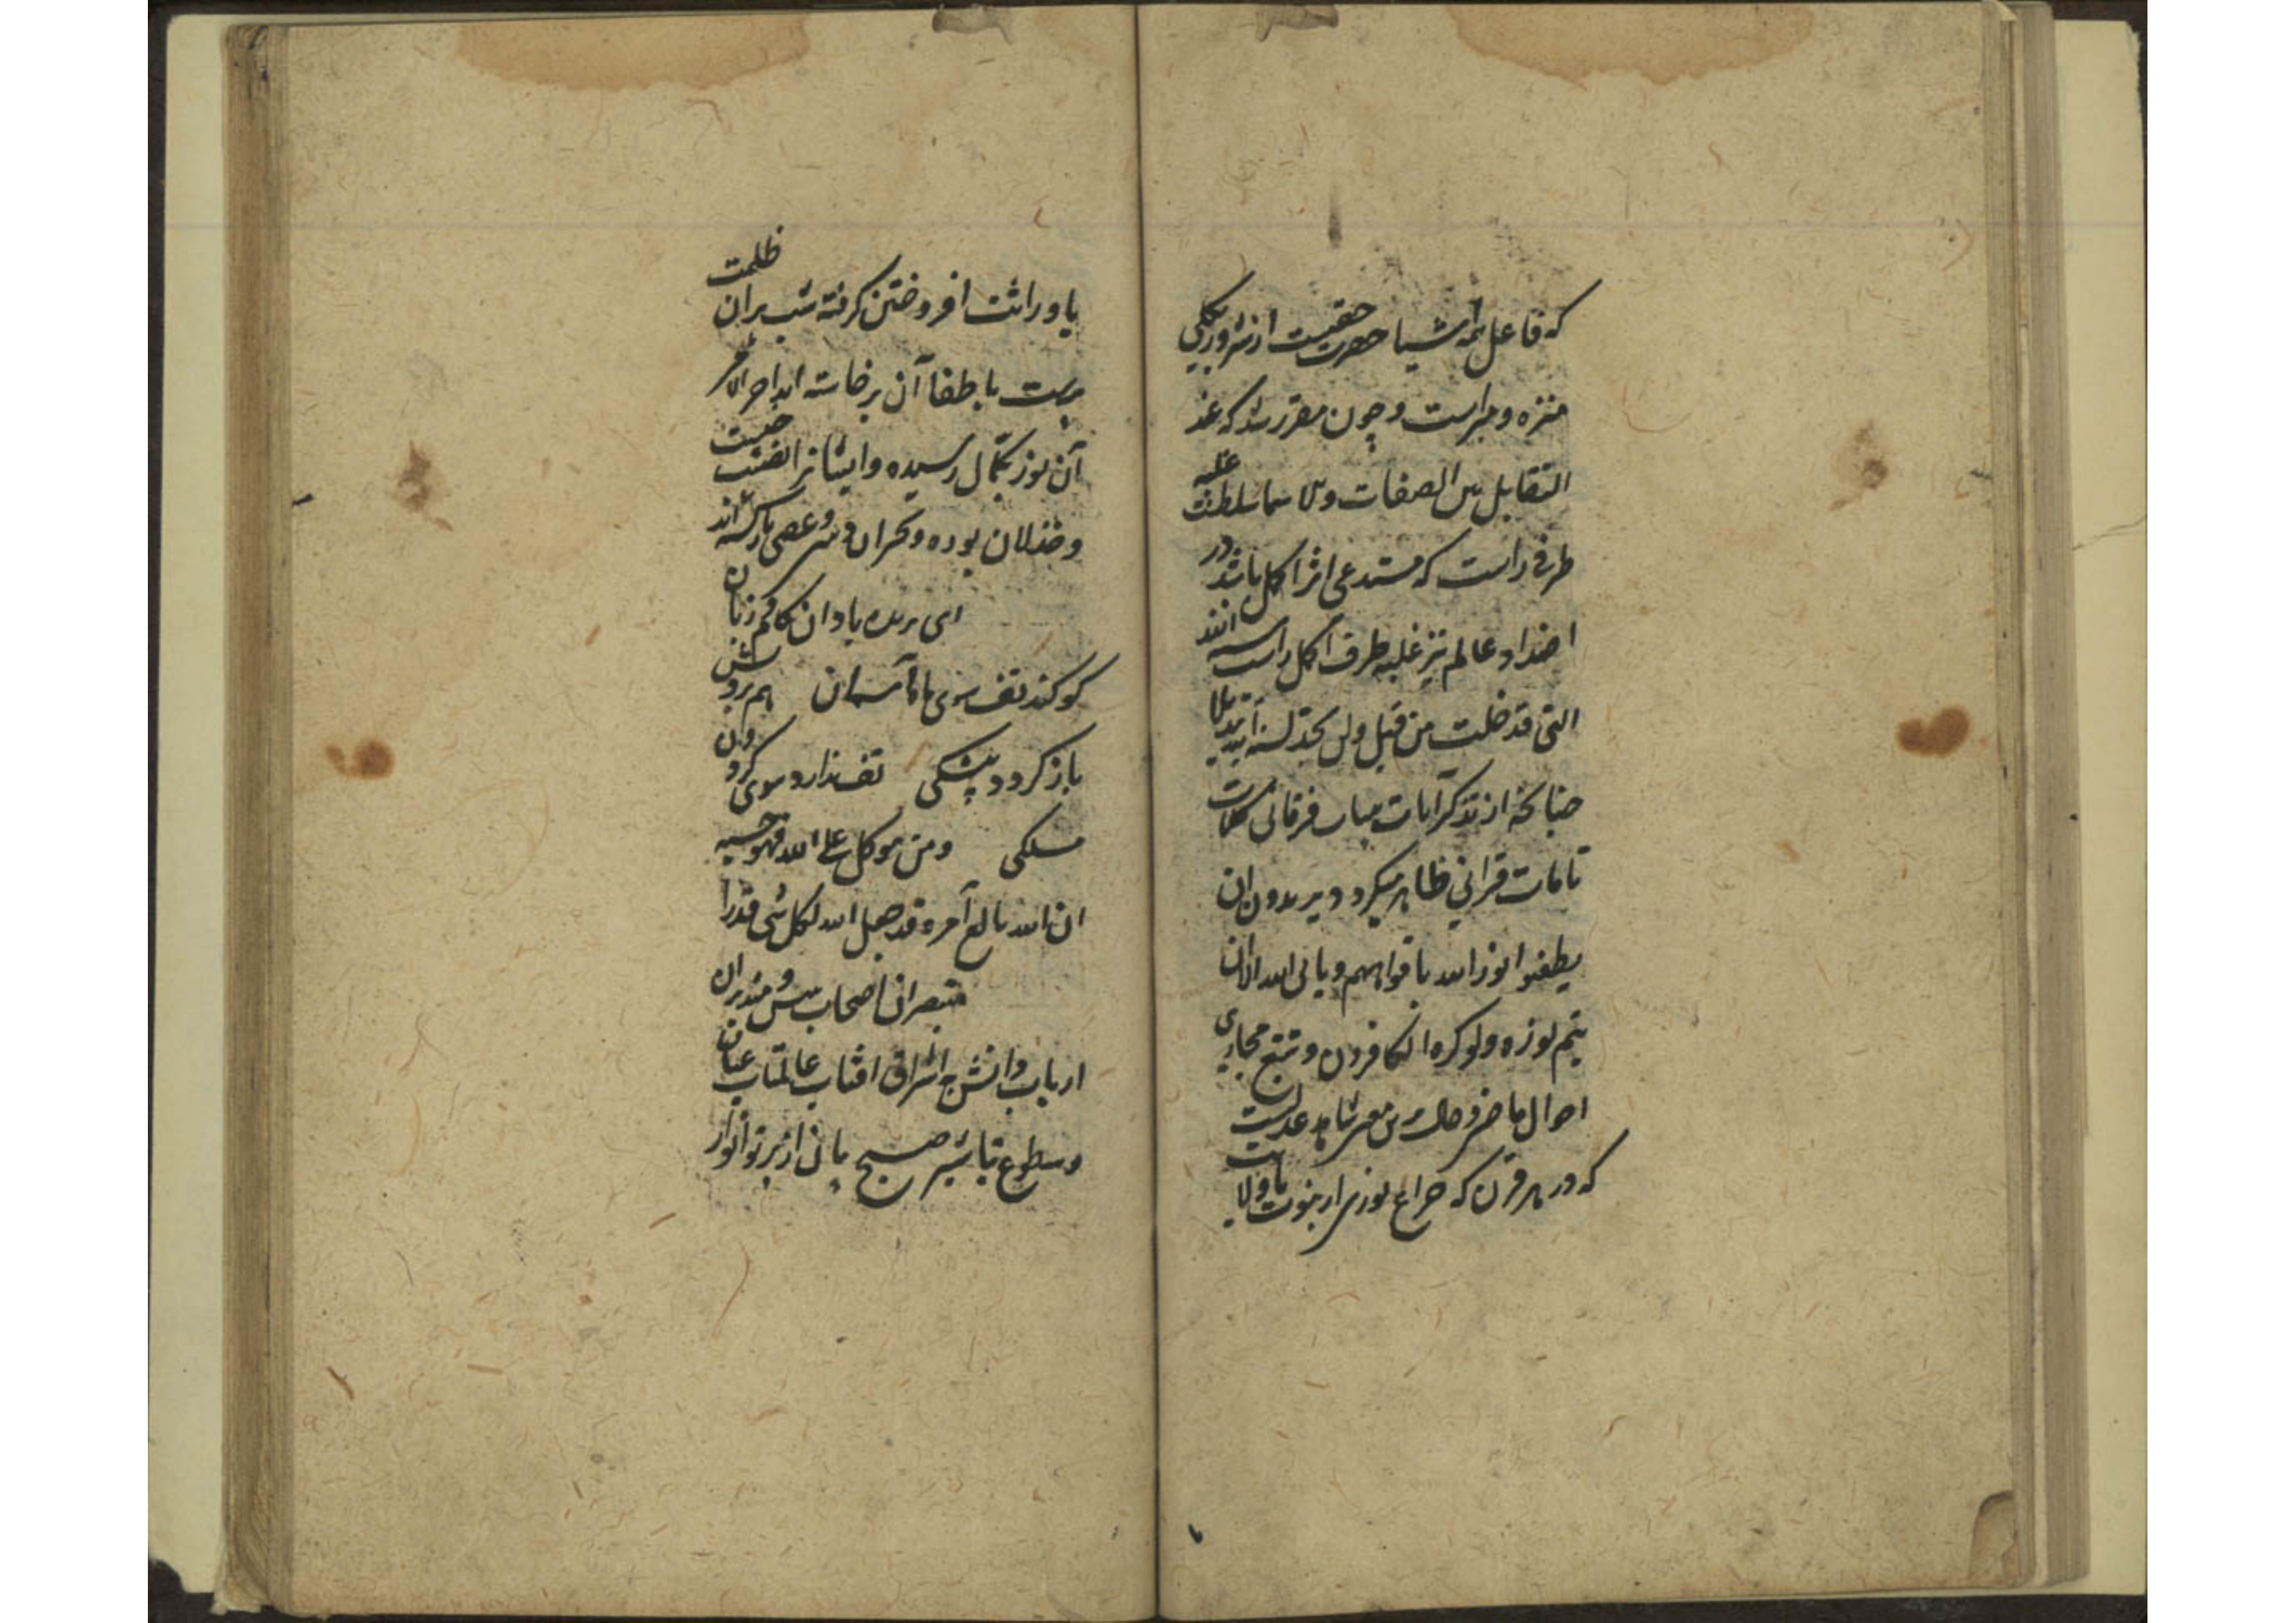 که فاعل همه اشیا حضرت حقیقت از شرور بکلی
منزه و مبراست و چون مقرر شد که عند
التقابل بین الصفات ولا سما سلطنت غلبه
طرفی راست که مستدعی اثر اکمل باشد در
اضداد عالم نیز غلبه طرف اکمل راست سنة الله
التی قد خلت من قبل ولن تجد لسنة الله تبدیلا
چنانچه از تذکر ایات بینات فرقانی کلمات
تامات قرانی ظاهر میکردد یریدون ان
یطفئوا نور الله بافواههم و یابی الله الا ان
یتم نوره ولو کره الکافرون و تتبع مجاری
احوال ماضی و حال برین معنی شاهد عدلست
که در هر قرن که چراغ نوری از نبوت یا ولایت
یا وراثت افروختن کرفته شب پران ظلمت
پرست باطفا آن برخاسته اند اخر الامر
آن نور بکمال رسیده و ایشانرا نصیب خیبت
و خذلان بوده و خسران
ای بریده باد ان کام و زبان
کو کند تف سوی ماه آسمان هم برویش
باز کردد بیشکی تف ندارد سوی کردون
مسلکی ومن یتوکل علی الله فهو حسبه
ان الله بالغ آمره قد جعل الله لکل شی قدرا
متبصران اصحاب بینش و متدبران
ارباب دانش اشراق افتاب عالمتاب عیان
و سطوع تباشیر صبح از پرتو انوار